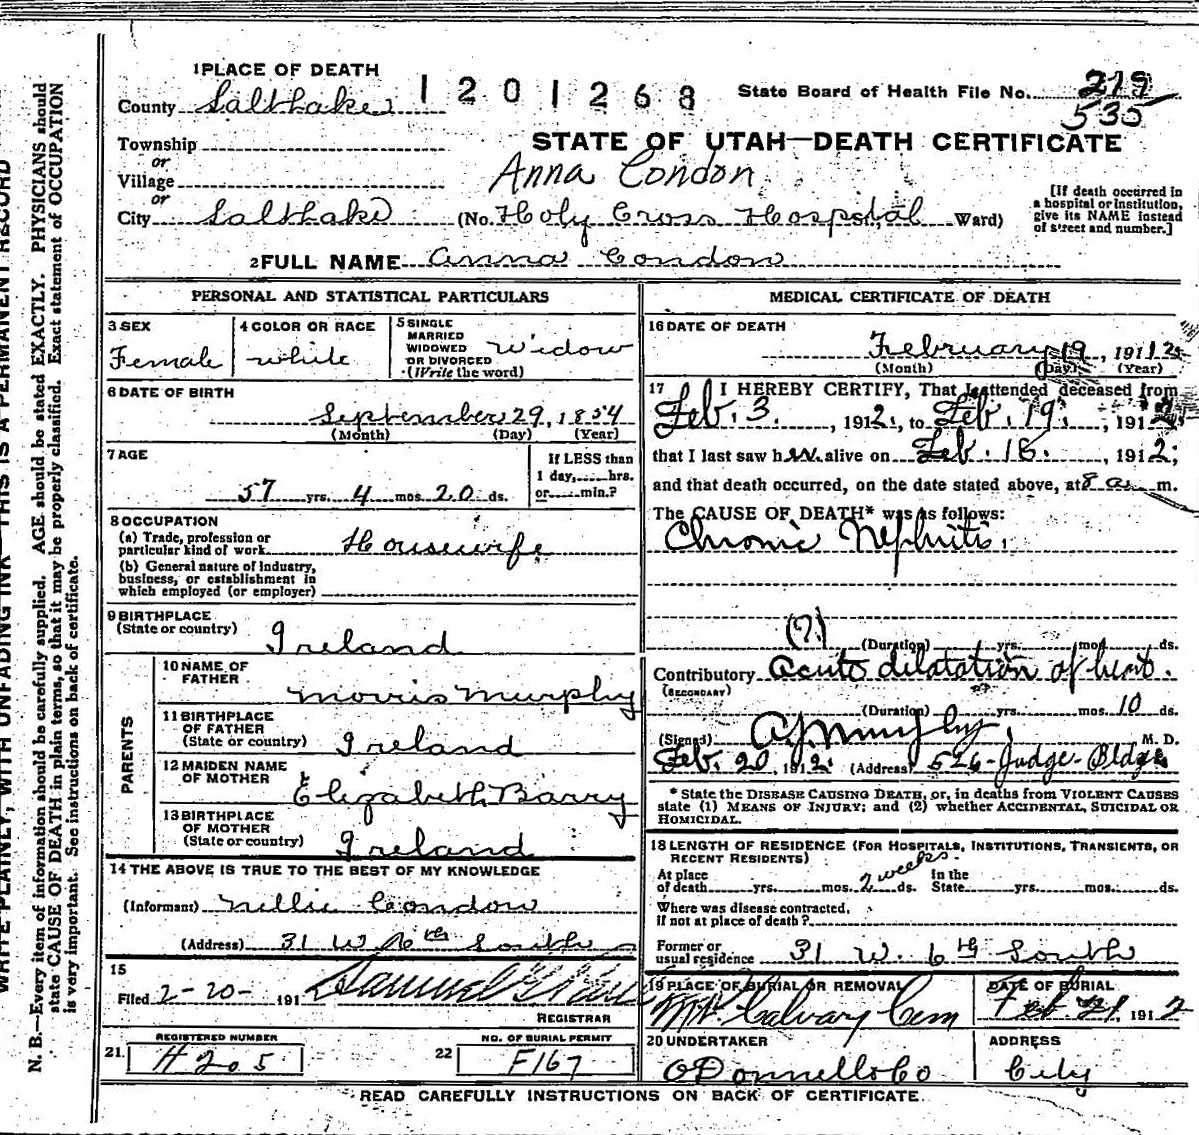 1 PLACE OF DEATH
County Salt Lake
1201268
State Board of Health File No. 219
535
STATE OF UTAH—DEATH CERTIFICATE
Township
or
Village
or
Anna Condon
City Salt Lake (No. Holy Cross Hospital St., Ward)
[If death occurred in a hospital or institution, give its NAME instead of street and number.]
2 FULL NAME Anna Condon
PERSONAL AND STATISTICAL PARTICULARS
3 SEX
Female
4 COLOR OR RACE
white
5 SINGLE
MARRIED
WIDOWED
OR DIVORCED
(Write the word)
Widow
6 DATE OF BIRTH
September 29, 1854
(Month) (Day) (Year)
7 AGE
57 yrs. 4 mos. 20 ds.
If LESS than
1 day, hrs.
or min.?
8 OCCUPATION
(a) Trade, profession or
particular kind of work Housewife
(b) General nature of industry,
business, or establishment in
which employed (or employer)
9 BIRTHPLACE
(State or country)
Ireland
PARENTS
10 NAME OF
FATHER
Morris Murphy
11 BIRTHPLACE
OF FATHER
(State or country) Ireland
12 MAIDEN NAME
OF MOTHER
Elizabeth Barry
13 BIRTHPLACE
OF MOTHER
(State or country) Ireland
14 THE ABOVE IS TRUE TO THE BEST OF MY KNOWLEDGE
(Informant) Nellie Condon
(Address) 31 W 6th South
15
Filed 2-20- 191
Samuel G
REGISTRAR
REGISTERED NUMBER
21. H205
NO. OF BURIAL PERMIT
22 F167
MEDICAL CERTIFICATE OF DEATH
16 DATE OF DEATH
February 19, 1912
(Month) (Day) (Year)
17 I HEREBY CERTIFY, That I attended deceased from
Feb. 3, 1912, to Feb. 19, 1912
that I last saw her alive on Feb. 18., 1912;
and that death occurred, on the date stated above, at 8 a m.
The CAUSE OF DEATH* was as follows:
Chronic Nephritis.
(?)
(Duration) yrs. mos. ds.
Contributory Acute dilatation of heart.
(SECONDARY)
(Duration) yrs. mos. 10 ds.
(Signed) A J Murphy, M. D.
Feb. 20, 1912. (Address) 526-Judge-Bldg
* State the DISEASE CAUSING DEATH, or, in deaths from VIOLENT CAUSES
state (1) MEANS OF INJURY; and (2) whether ACCIDENTAL, SUICIDAL OR
HOMICIDAL.
18 LENGTH OF RESIDENCE (FOR HOSPITALS, INSTITUTIONS, TRANSIENTS, OR
RECENT RESIDENTS)
At place
of death yrs. mos. 2 weeks. ds. In the
State yrs. mos. ds.
Where was disease contracted,
if not at place of death?
Former or
usual residence 31 W. 6th South
19 PLACE OF BURIAL OR REMOVAL
Mt Calvary Cem
DATE OF BURIAL
Feb 21, 1912
20 UNDERTAKER
O'Donnell & Co
ADDRESS
City
READ CAREFULLY INSTRUCTIONS ON BACK OF CERTIFICATE.
WRITE PLAINLY, WITH UNFADING INK—THIS IS A PERMANENT RECORD
N. B.—Every item of information should be carefully supplied. AGE should be stated EXACTLY. PHYSICIANS should
state CAUSE OF DEATH in plain terms, so that it may be properly classified. Exact statement of OCCUPATION
is very important. See instructions on back of certificate.